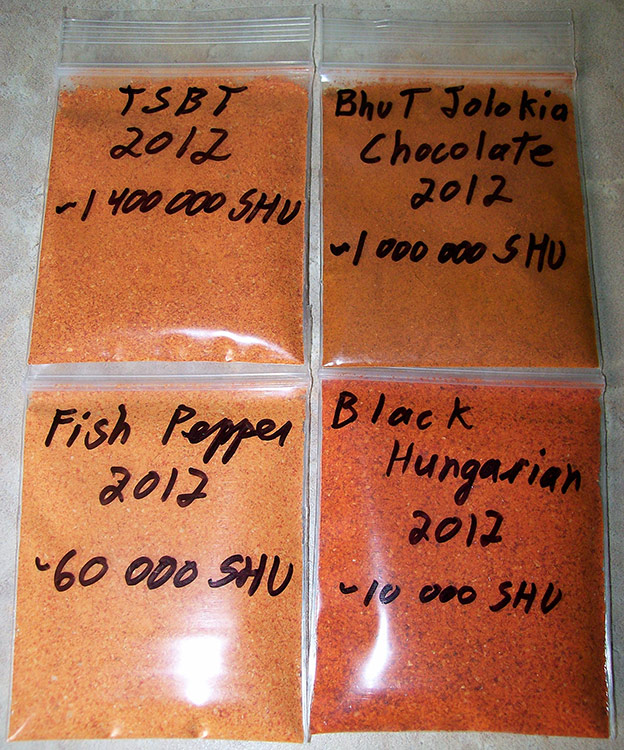 TSBT
2012
~1 400 000 SHU
BhuT Jolokia
Chocolate
2012
~1 000 000 SHU
Fish Pepper
2012
~60 000 SHU
Black
Hungarian
2012
~10 000 SHU